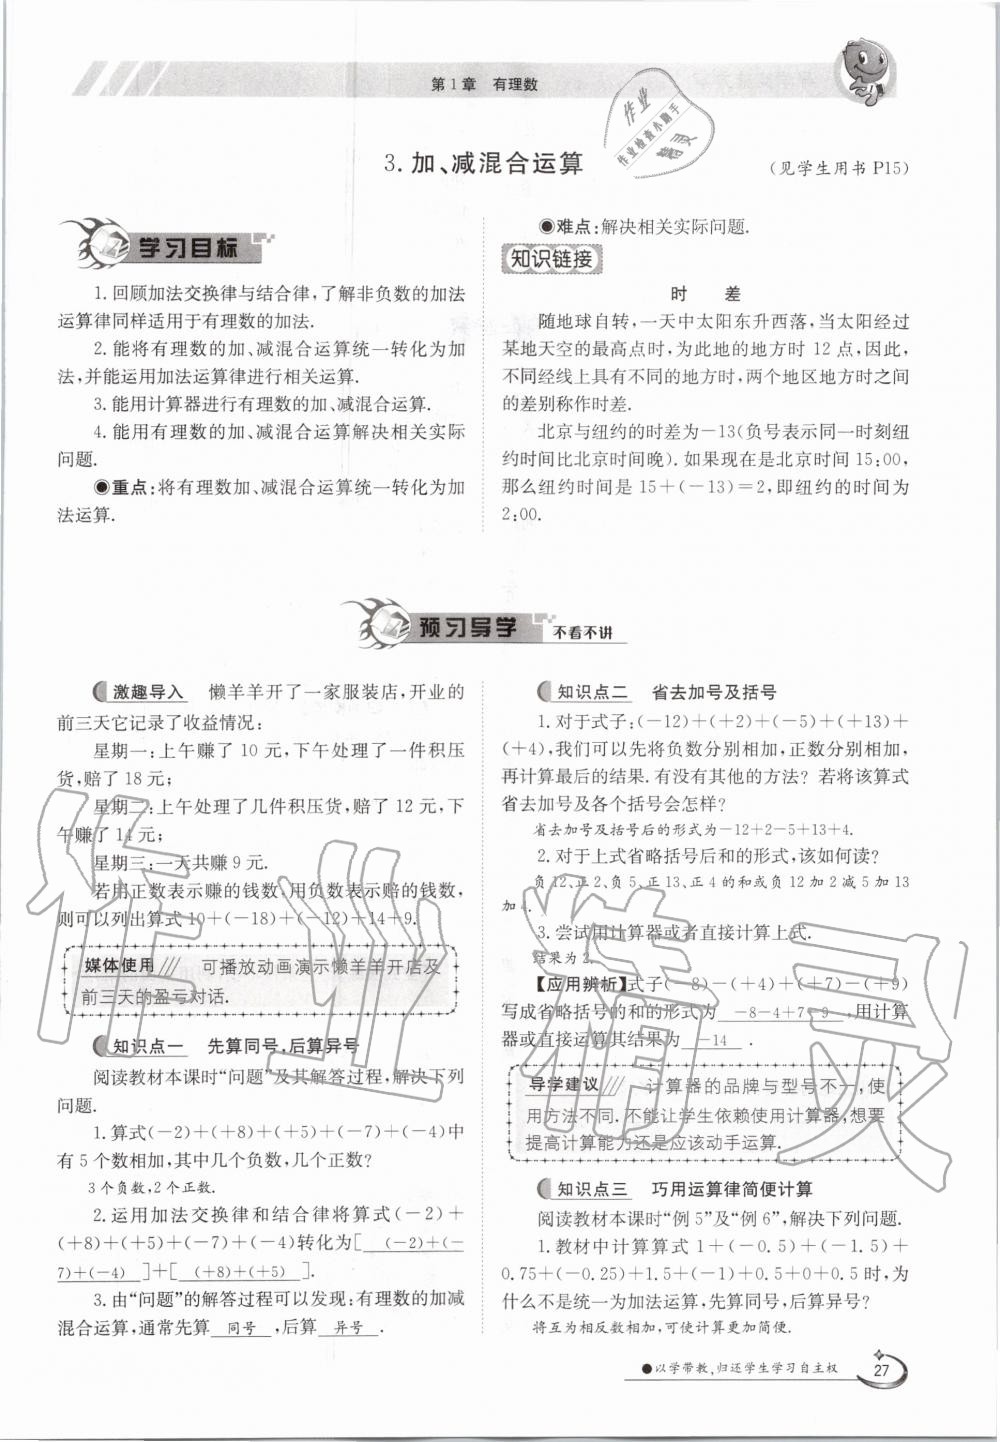 第1章　有理数
作业
作业检查小助手
精灵
3.加、减混合运算
(见学生用书 P15)
学习目标
1.回顾加法交换律与结合律,了解非负数的加法
运算律同样适用于有理数的加法.
2.能将有理数的加、减混合运算统一转化为加
法,并能运用加法运算律进行相关运算.
3.能用计算器进行有理数的加、减混合运算.
4.能用有理数的加、减混合运算解决相关实际
问题.
◉重点:将有理数加、减混合运算统一转化为加
法运算.
◉难点:解决相关实际问题.
知识链接
时　差
随地球自转,一天中太阳东升西落,当太阳经过
某地天空的最高点时,为此地的地方时 12 点,因此,
不同经线上具有不同的地方时,两个地区地方时之间
的差别称作时差.
北京与纽约的时差为-13(负号表示同一时刻纽
约时间比北京时间晚).如果现在是北京时间 15:00,
那么纽约时间是 15+(-13)=2,即纽约的时间为
2:00.
预习导学 不看不讲
激趣导入　懒羊羊开了一家服装店,开业的
前三天它记录了收益情况:
星期一:上午赚了 10 元,下午处理了一件积压
货,赔了 18 元;
星期二:上午处理了几件积压货,赔了 12 元,下
午赚了 14 元;
星期三:一天共赚 9 元.
若用正数表示赚的钱数,用负数表示赔的钱数,
则可以列出算式 10+(-18)+(-12)+14+9.
媒体使用　可播放动画演示懒羊羊开店及
前三天的盈亏对话.
知识点一　先算同号,后算异号
阅读教材本课时“问题”及其解答过程,解决下列
问题.
1.算式(-2)+(+8)+(+5)+(-7)+(-4)中
有 5 个数相加,其中几个负数,几个正数?
3个负数,2个正数.
2.运用加法交换律和结合律将算式(-2)+
(+8)+(+5)+(-7)+(-4)转化为[ (-2)+(-
7)+(-4) ]+[ (+8)+(+5) ].
3.由“问题”的解答过程可以发现:有理数的加减
混合运算,通常先算 同号 ,后算 异号 .
知识点二　省去加号及括号
1.对于式子:(-12)+(+2)+(-5)+(+13)+
(+4),我们可以先将负数分别相加,正数分别相加,
再计算最后的结果.有没有其他的方法? 若将该算式
省去加号及各个括号会怎样?
省去加号及括号后的形式为-12+2-5+13+4.
2.对于上式省略括号后和的形式,该如何读?
负12、正2、负5、正13、正4的和或负12加2减5加13
加4.
3.尝试用计算器或者直接计算上式.
结果为2.
【应用辨析】式子(-8)-(+4)+(+7)-(+9)
写成省略括号的和的形式为 -8-4+7-9 ,用计算
器或直接运算其结果为 -14 .
导学建议　计算器的品牌与型号不一,使
用方法不同.不能让学生依赖使用计算器,想要
提高计算能力还是应该动手运算.
知识点三　巧用运算律简便计算
阅读教材本课时“例 5”及“例 6”,解决下列问题.
1.教材中计算算式 1+(-0.5)+(-1.5)+
0.75+(-0.25)+1.5+(-1)+0.5+0+0.5 时,为
什么不是统一为加法运算,先算同号,后算异号?
将互为相反数相加,可使计算更加简便.
●以学带教,归还学生学习自主权
27
作业精灵